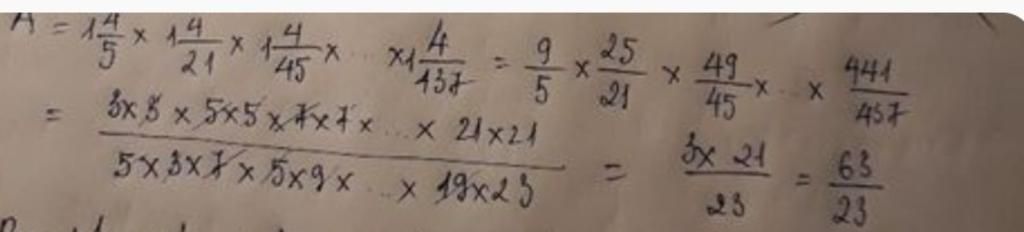 A = 1 4/5 × 1 4/21 × 1 4/45 × ... × 1 4/437 = 9/5 × 25/21 × 49/45 × ... × 441/437
= (3×3 × 5×5 × 7×7 × ... × 21×21)/(5×3×7 × 5×9 × ... × 19×23) = (3× 21)/23 = 63/23